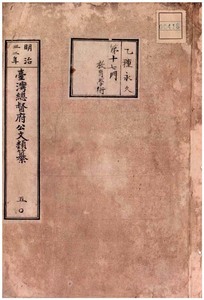 乙種永久
第十七門
教育學術
明治
三二年
臺灣總督府公文類纂
五〇